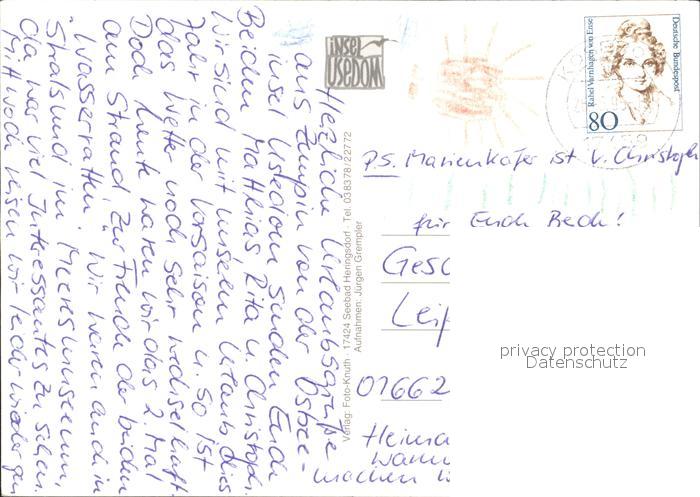 Herzliche Urlaubsgrüße
aus Zempin von der Ostsee-
insel Usedom senden Euch
Beiden Matthias, Rita u. Christoph.
Wir sind mit unserem Urlaub dies
Jahr in der Vorsaison u. so ist
das Wetter noch sehr wechselhaft.
Doch heute waren wir das 2. Mal
am Strand, zur Freude der beiden
"Wasserratten". Wir waren auch in
Stralsund im Meeresmuseum,
da war viel Interessantes zu sehen.
Mittwoch reisen wir leider wieder
machen
insel
USEDOM
Verlag: Foto-Knuth · 17424 Seebad Heringsdorf · Tel. 038378/22772
Aufnahmen: Jürgen Grempler
Rahel Varnhagen von Ense
Deutsche Bundespost
80
P.S. Marienkäfer ist v. Christoph
für Euch Bech!
Gesc
Leip
01662
Heima
wann
privacy protection
Datenschutz